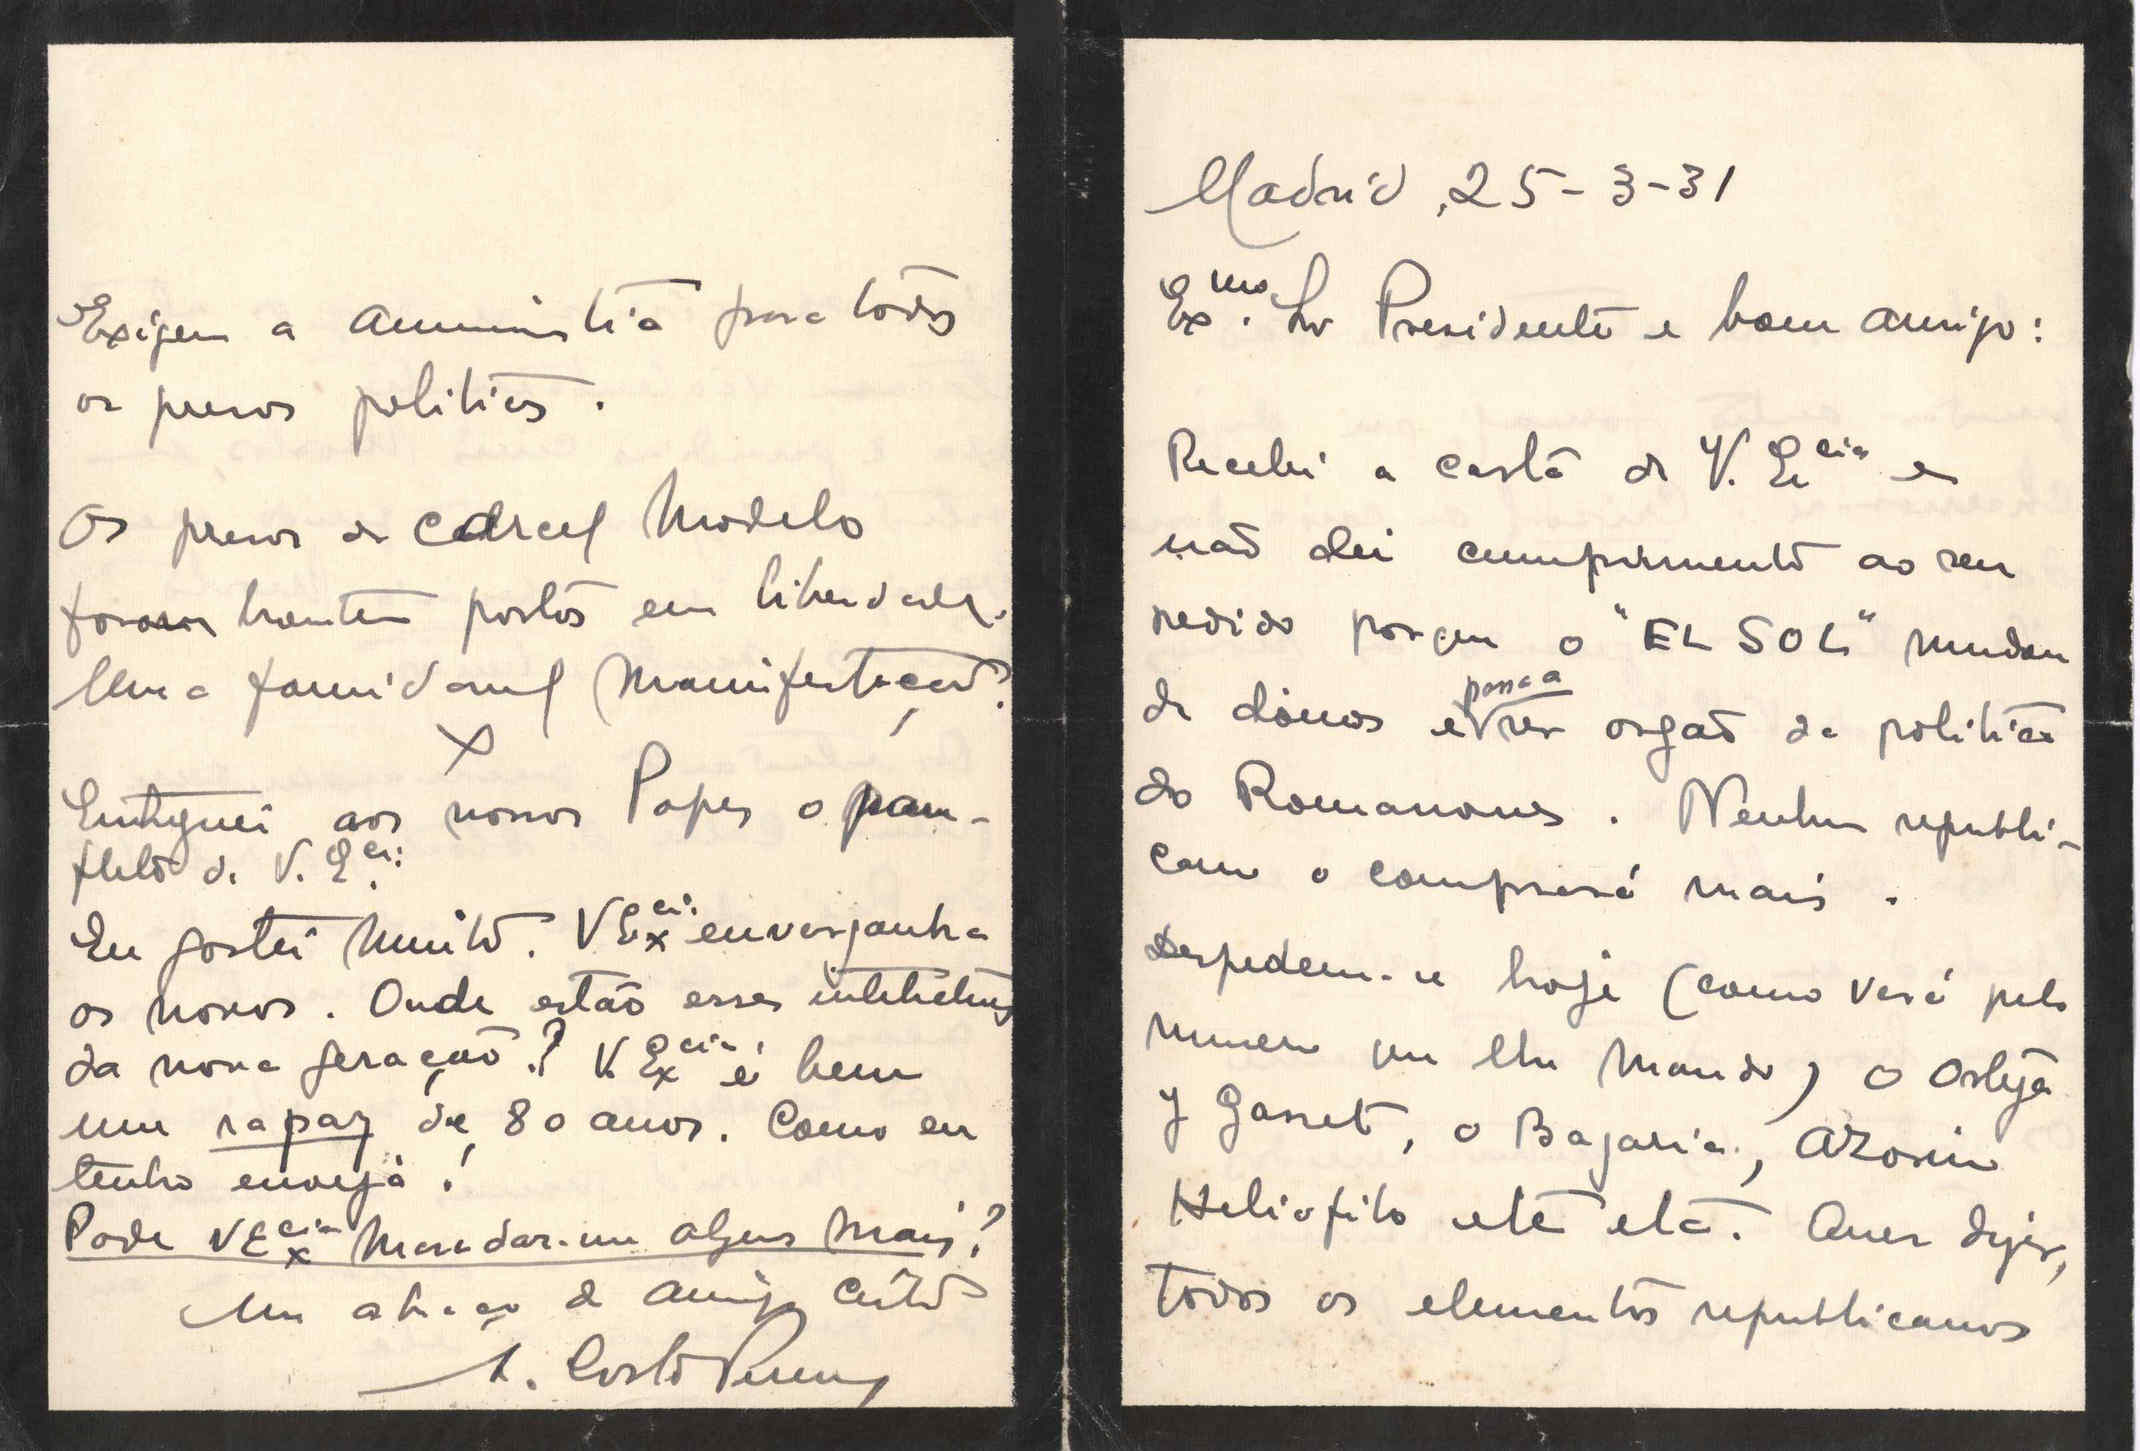 Madrid, 25-3-31
Exmo. Sr Presidente e bom amigo:
Recebi a carta de V. Ecia e
não dei cumprimento ao seu
pedido porque o "EL SOL" mudou
de donos e passa a ser orgão da politica
do Romanones. Nenhum republi-
cano o comprará mais.
Despedem-se hoje (como verá pelo
numero que lhe mando) o Ortega
y Gasset, o Bagaria, Azorin
Heliofilo etc etc. Quer dizer,
todos os elementos republicanos
Exigem a amnistia para todos
os presos politicos.
Os presos da Carcel Modelo
foram hontem postos em liberdade.
Uma formidavel manifestação?
X
Entreguei aos nossos Papes o pam-
fleto de V. Ecia.
Eu gostei muito. V Excia. envergonha
os novos. Onde estão esses intelectuaes
da nova geração? V. Excia é bem
um rapaz de 80 anos. Como eu
tenho enveja!
Pode V Excia mandar-me alguns mais?
Um abraço do amigo certo